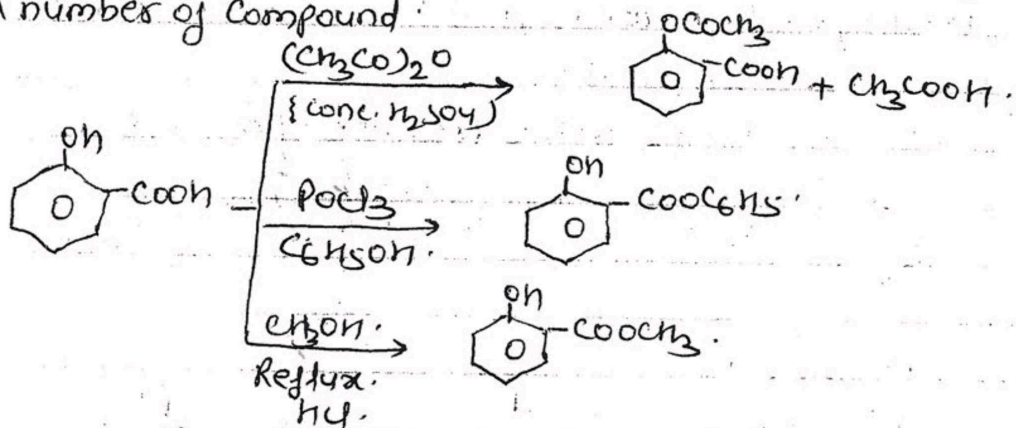 number of Compound.
(CH3CO)2O
{conc. H2SO4}
OCOCH3
-COOH + CH3COOH.
OH
-COOH
POCl3
C6H5OH.
OH
-COOC6H5.
CH3OH.
Reflux.
HCl.
OH
-COOCH3.